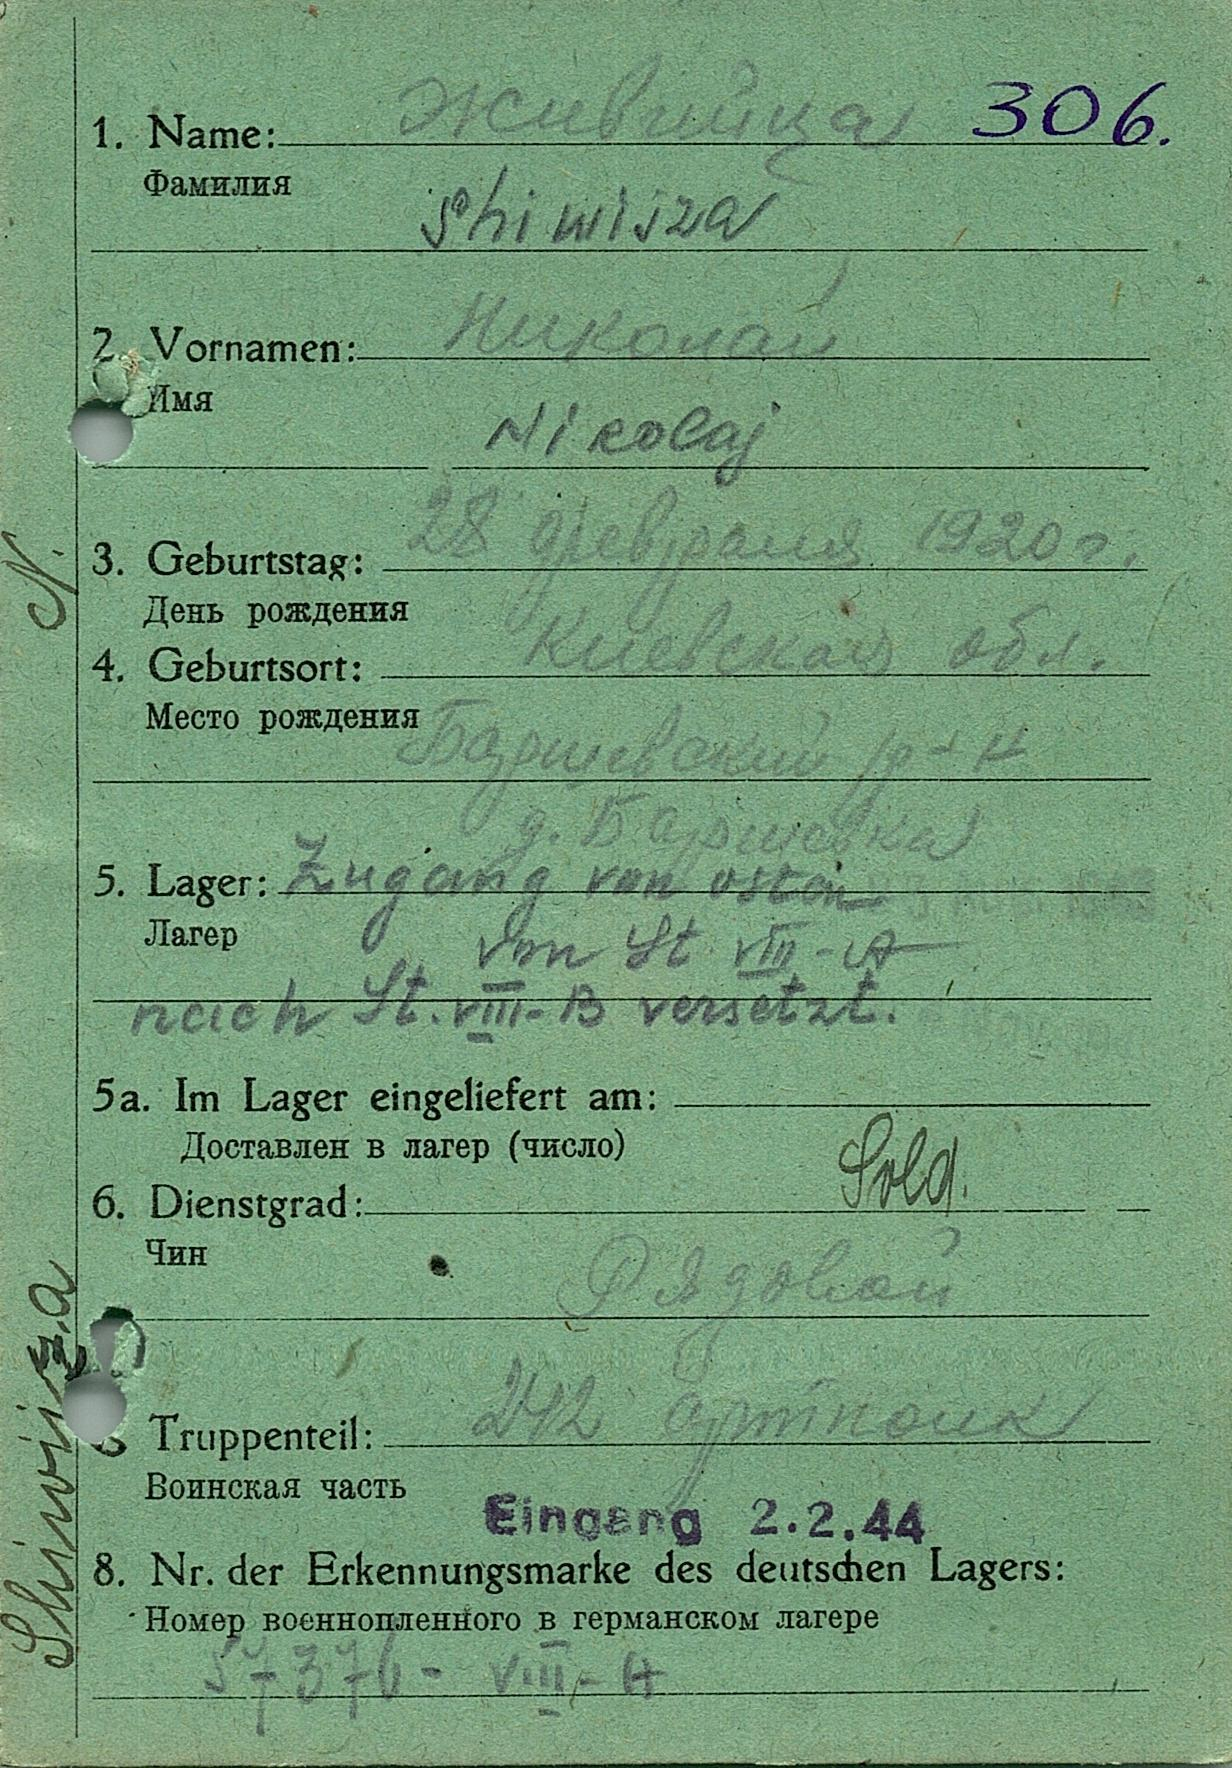 306.
1. Name: Живийца
Фамилия
Shiwijza
2. Vornamen: Николай
Имя
Nikolaj
3. Geburtstag: 28 февраля 1920 г.
День рождения
4. Geburtsort: Киевская обл.
Место рождения
Барышевский р-н
д. Барышевка
5. Lager: Zugang von osten
Лагер
von St VIII-A
nach St. VIII-B versetzt.
5a. Im Lager eingeliefert am:
Доставлен в лагер (число)
Sold.
6. Dienstgrad:
Чин
Рядовой
Truppenteil: 242 артполк
Воинская часть
Eingang 2.2.44
8. Nr. der Erkennungsmarke des deutschen Lagers:
Номер военнопленного в германском лагере
57376 - VIII-A
Shiwijza N.